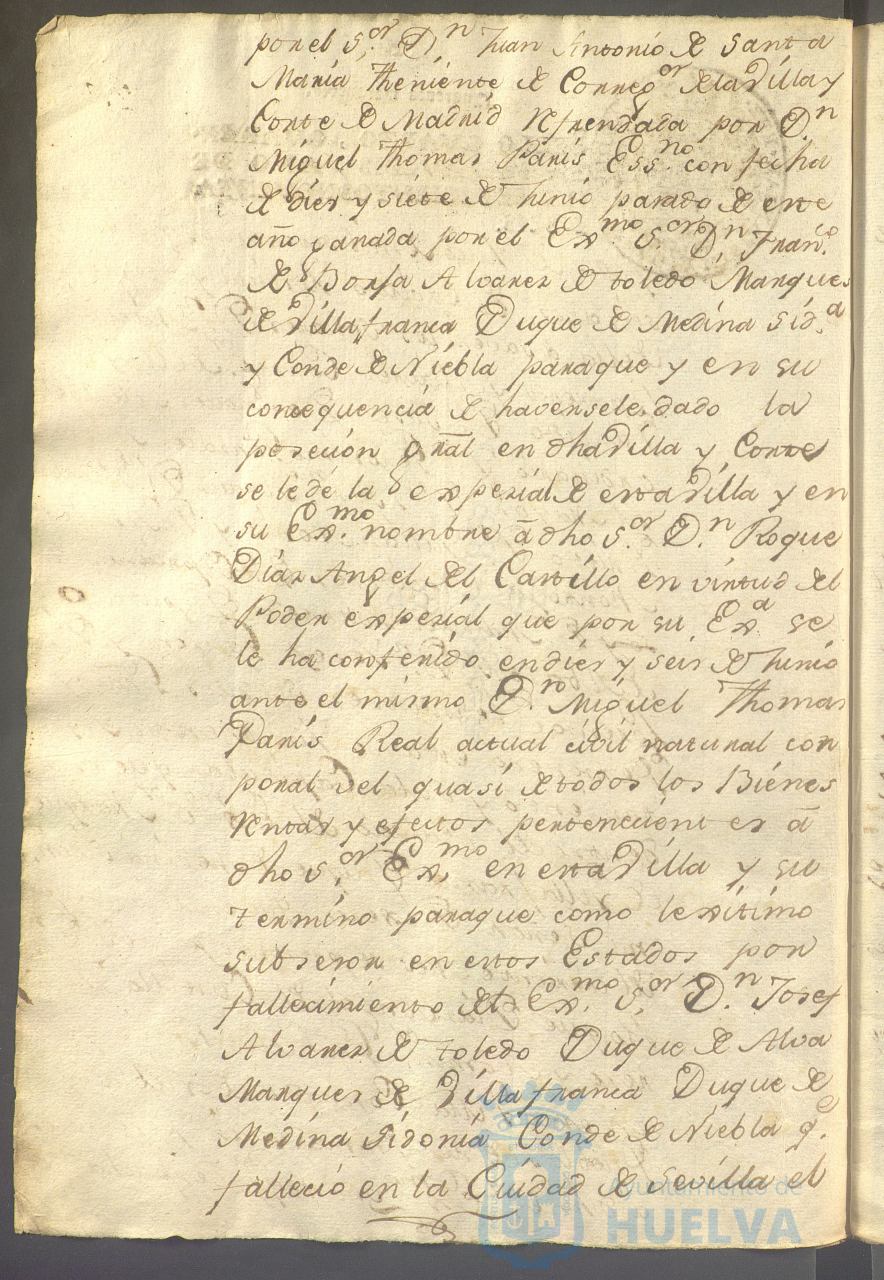 por el S.or D.n Juan Antonio de Santa
Maria Theniente de Correg.or de la Villa y
Corte de Madrid Refrendada por D.n
Miguel Thomas Paris Ess.no con fecha
de dies y siete de Junio pasado de este
año ganada por el Ex.mo S.or D.n Fran.co
de Borja Alvares de toledo Marques
de Villafranca Duque de Medina Sid.a
y Conde de Niebla paraque y en su
consequencia de haversele dado la
posecion gral en dha Villa y Corte
se le dé la expesial de esta Villa y en
su Ex.mo nombre â dho S.or D.n Roque
Dias Angel del Castillo en virtud del
Poder expesial que por su Ex.a se
le ha conferido en dies y seis de Junio
ante el mismo D.n Miguel Thomas
Paris Real actual civil natural cor
poral vel quasi de todos los Bienes
Rentas y efectos pertenecientes â
dho S.or Ex.mo en esta Villa y su
termino paraque como lexitimo
subsesor en estos Estados por
fallecimiento del Ex.mo S.or D.n Josef
Alvares de toledo Duque de Alva
Marques de Villafranca Duque de
Medina Sidonia Conde de Niebla q.e
fallecio en la Ciudad de Sevilla el
Ayuntamiento de
HUELVA